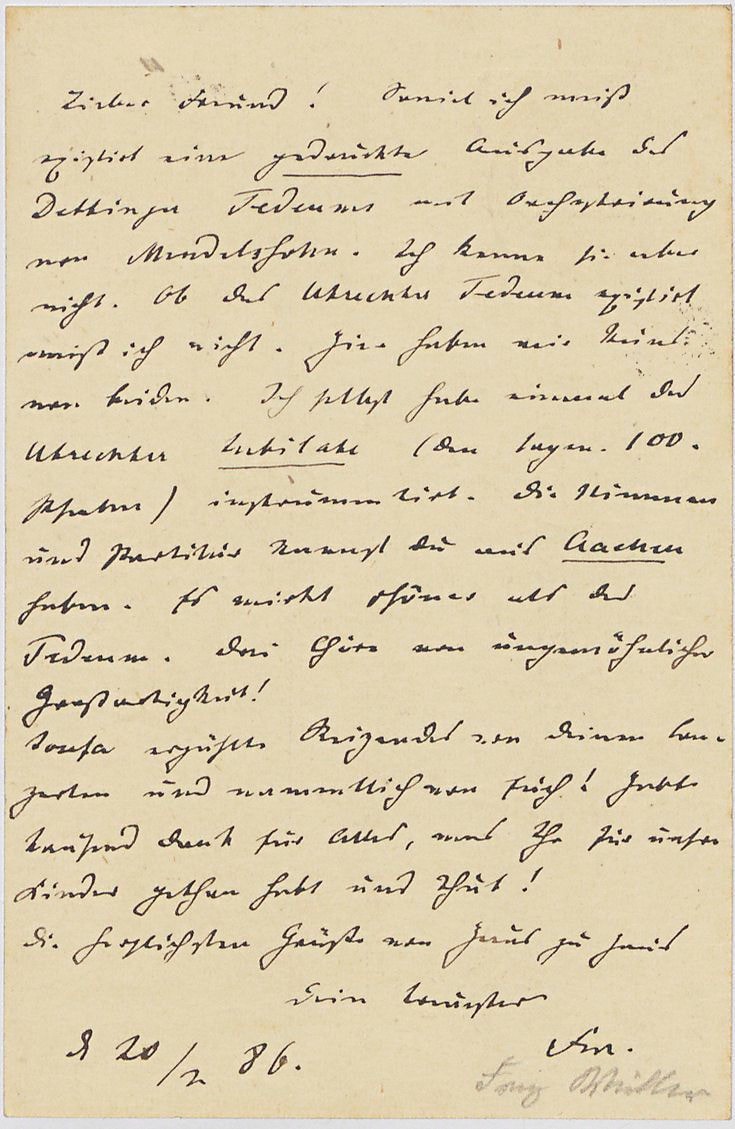 Lieber Freund! Soviel ich weiß
existirt eine gedruckte Ausgabe des
Dettinger Tedeums mit Orchestrirung
von Mendelssohn. Ich kenne sie aber
nicht. Ob das Utrechter Tedeum existirt
weiß ich nicht. Hier haben wir keins
von beiden. Ich selbst habe einmal das
Utrechter Jubilate (den sogen. 100.
Psalm) instrumentirt. Die Stimmen
und Partitur kannst Du aus Aachen
haben. Es wirkt schöner als das
Tedeum. Drei Chöre von ungewöhnlicher
Großartigkeit!
Josefa erzählte Reizendes von Deinen Con-
zerten und namentlich von Euch! Habt
tausend Dank für Alles, was Ihr für unsre
Kinder gethan habt und thut!
Die herzlichsten Grüße von Haus zu Haus
Dein treuester
d 20/2 86. FW.
Franz Wüllner